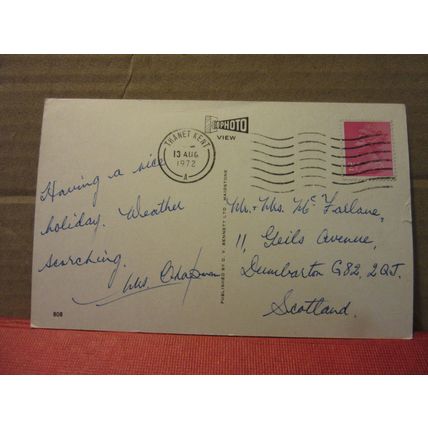 Having a nice
holiday. Weather
scorching.
Mrs. Chapman
808
THANET KENT
13 AUG
1972
A
PHOTO
VIEW
PUBLISHED BY D. A. BENNETT LTD. MAIDSTONE
Mr. & Mrs. Mc Farlane,
11, Geils Avenue,
Dumbarton G82, 2QJ.
Scotland.